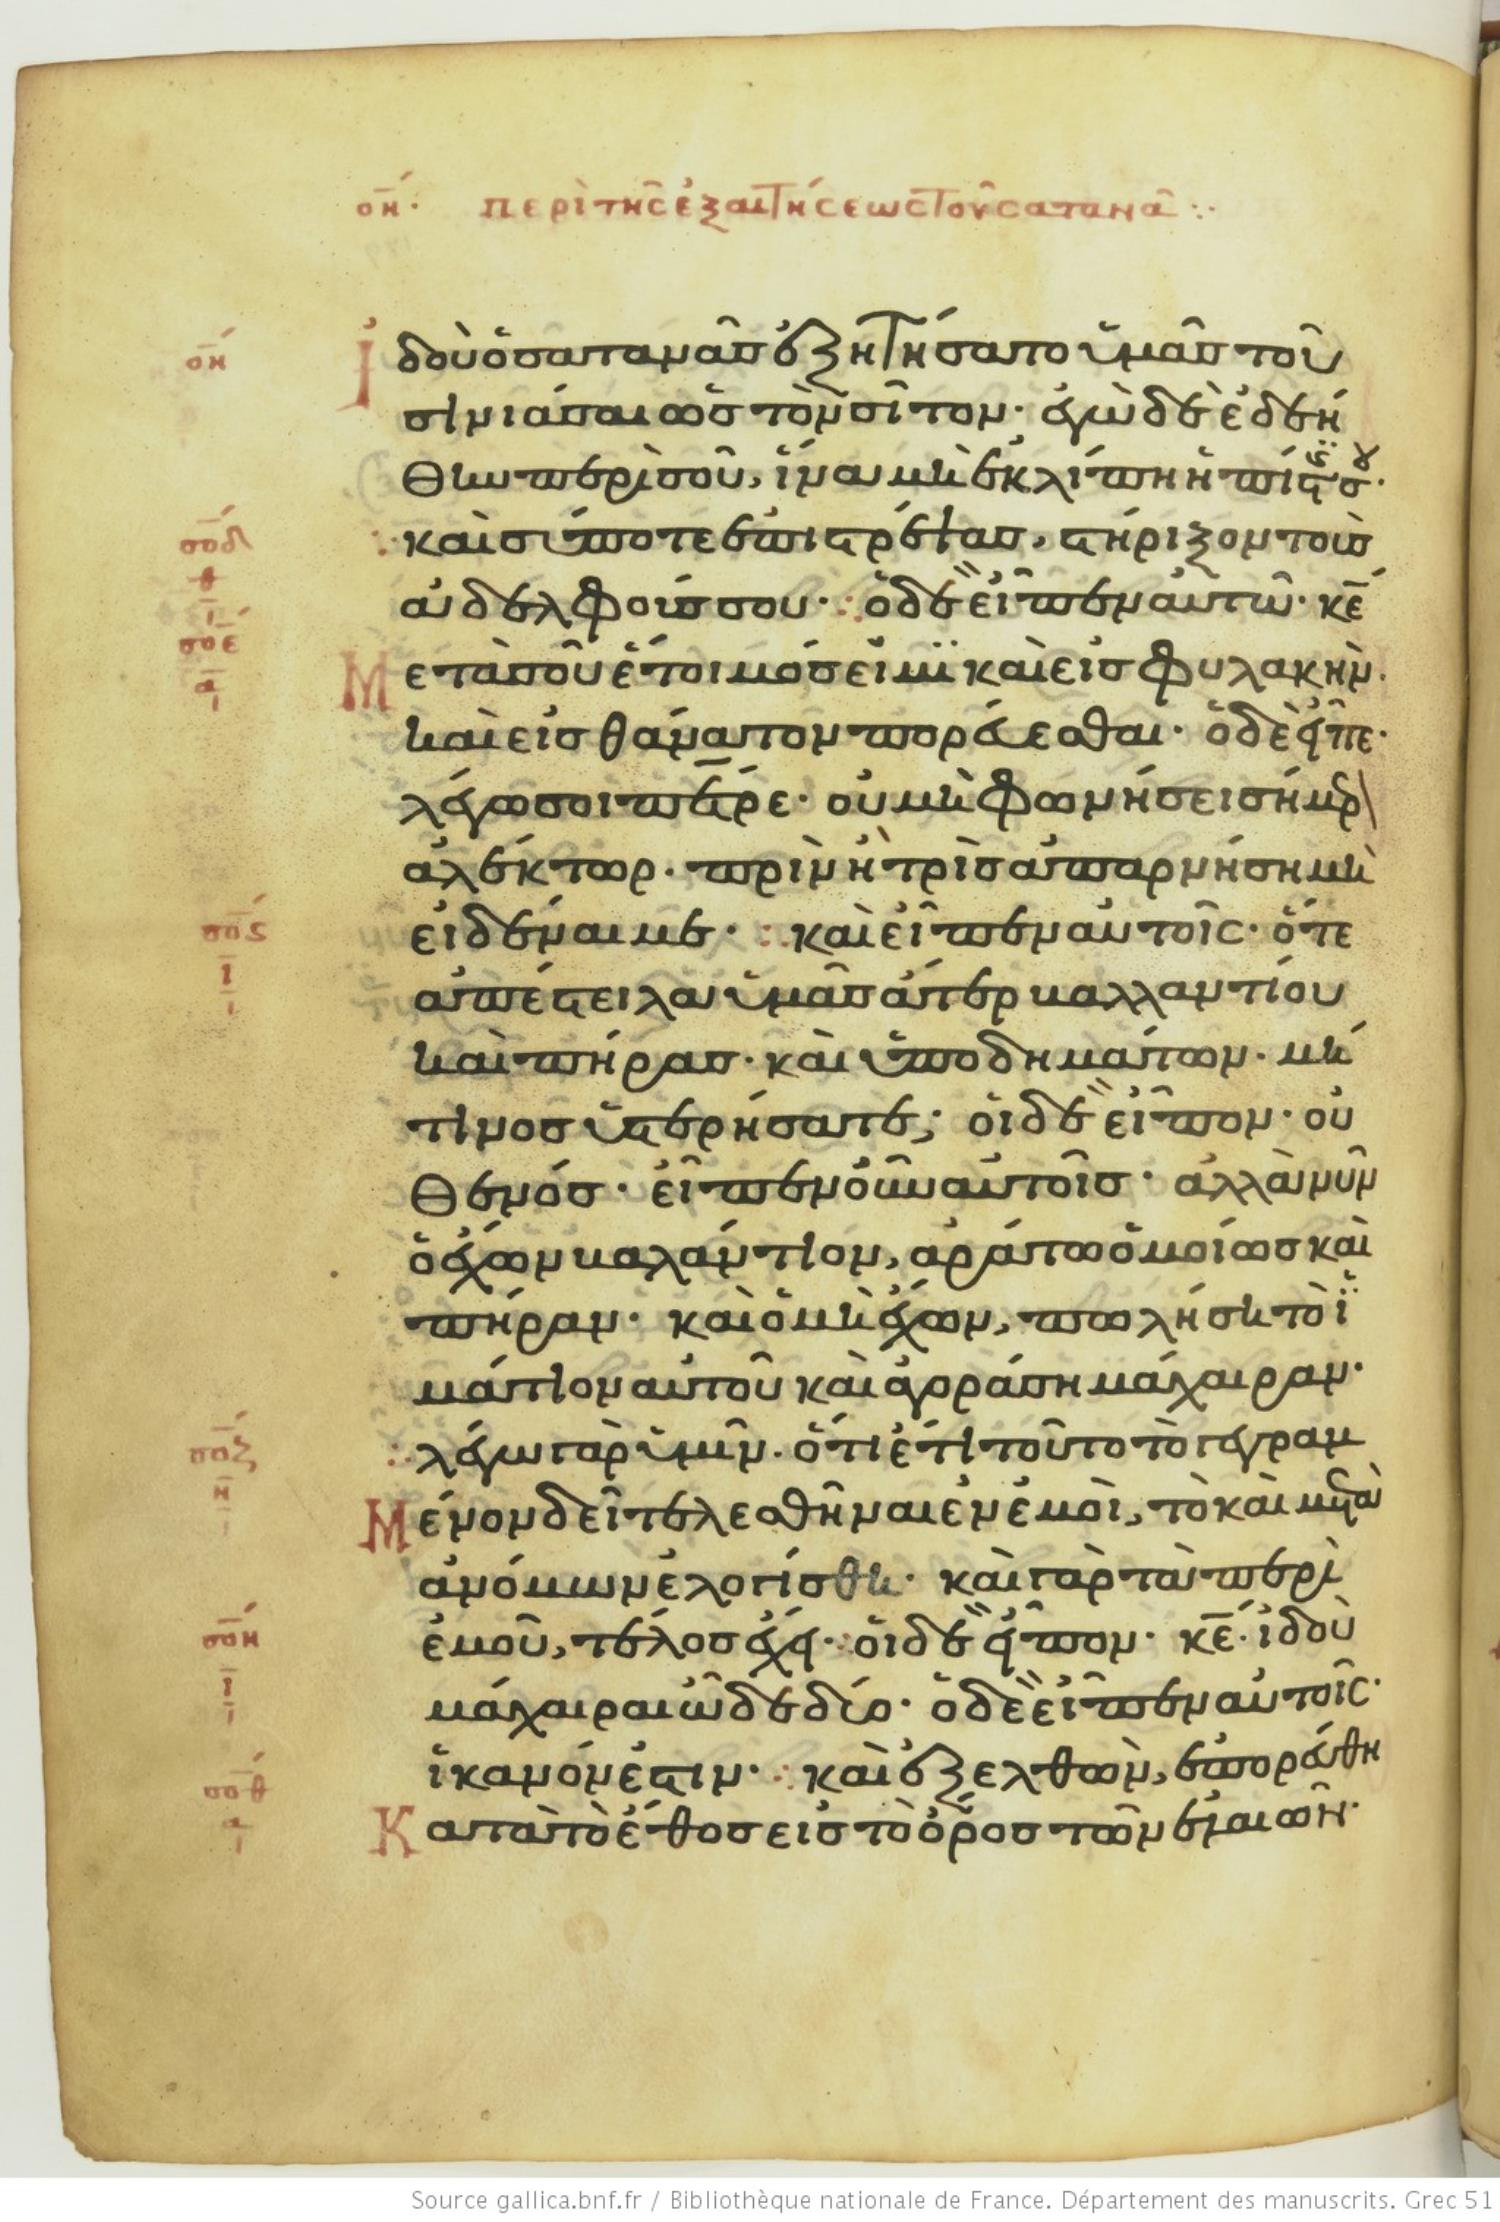 οη΄. περὶ τῆς ἐξαιτήσεως τοῦ σατανᾶ
οη Ἰδοὺ ὁ σατανᾶς ἐξητήσατο ὑμᾶς τοῦ
σινιάσαι ὡς τὸν σῖτον· ἐγὼ δὲ ἐδεή
θην περὶ σοῦ, ἵνα μὴ ἐκλίπη ἡ πίστις σου·
σοδ θ καὶ σύ ποτε ἐπιστρέψας, στήριξον τοὺς
ἀδελφούς σου· ὁ δὲ εἶπεν αὐτῶ· κε
σοε α Μετὰ σοῦ ἕτοιμός εἰμϊ καὶ εἰς φυλακὴν·
καὶ εἰς θάνατον πορεύεσθαι· ὁ δὲ εἶπε·
λέγω σοι πέτρε· οὐ μὴ φωνήσει σήμερ
ἀλέκτωρ· πρὶν ἢ τρὶς ἀπαρνήση μὴ
σος ι εἰδέναι με· καὶ εἶπεν αὐτοῖς· ὅτε
ἀπέστειλα ὑμᾶς ἄτερ βαλλαντίου
καὶ πήρας· καὶ ὑποδημάτων· μή
τινος ὑστερήσατε; οἱ δὲ εἶπον· οὐ
θενός· εἶπεν οὖν αὐτοῖς· ἀλλὰ νῦν
ὁ ἔχων βαλάντιον, ἀράτω ὁμοίως καὶ
πήραν· καὶ ὁ μὴ ἔχων, πωλήσει τὸ ἱ
μάτιον αὐτοῦ καὶ ἀγοράσει μάχαιραν·
σοζ η λέγω γὰρ ὑμῖν· ὅτι ἔτι τοῦτο τὸ γεγραμ
Μένον δεῖ τελεσθῆναι ἐν ἐμοὶ, τὸ καὶ μετὰ
ἀνόμων ἐλογίσθη· καὶ γὰρ τὰ περὶ
σοη ι ἐμοῦ, τέλος ἔχει· οἱ δὲ εἶπον· κε· ἰδοὺ
μάχαιραι ὧδε δύο· ὁ δὲ εἶπεν αὐτοῖς·
σοθ α ἱκανόν ἐστιν· καὶ ἐξελθὼν, ἐπορεύθη
Κατὰ τὸ ἔθος εἰς τὸ ὄρος τῶν ἐλαιῶν·
Source gallica.bnf.fr / Bibliothèque nationale de France. Département des manuscrits. Grec 51